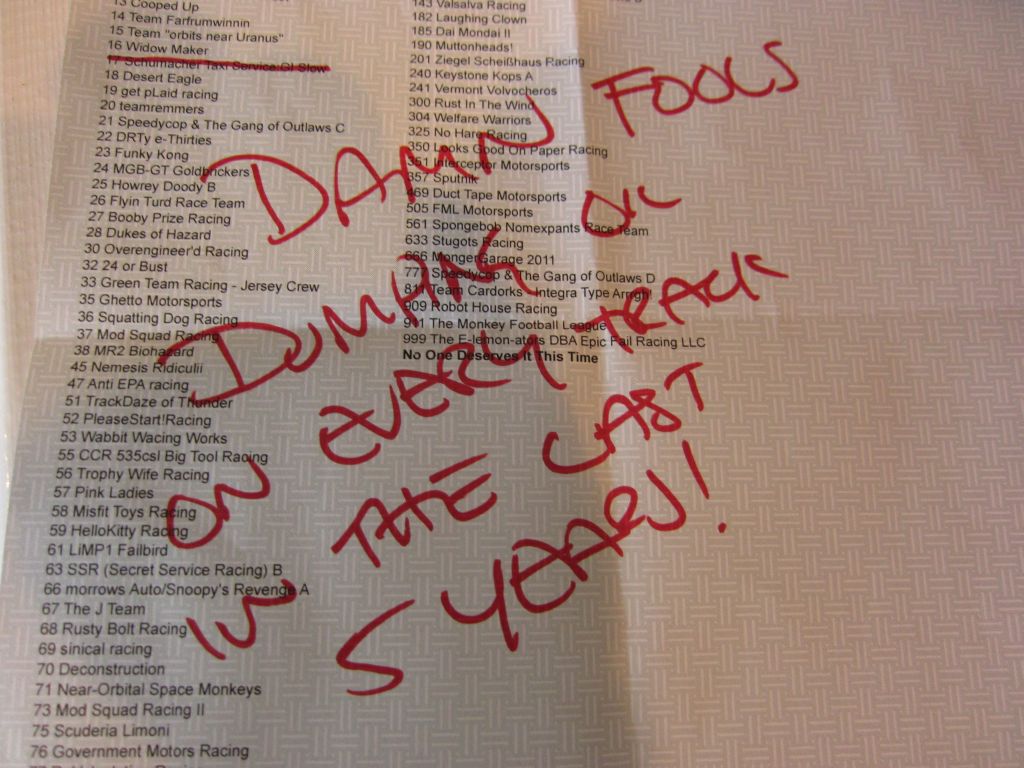 13 Cooped Up
14 Team Farfrumwinnin
15 Team "orbits near Uranus"
16 Widow Maker
17 Schumacher Taxi Service:GI Slow
18 Desert Eagle
19 get pLaid racing
20 teamremmers
21 Speedycop & The Gang of Outlaws C
22 DRTy e-Thirties
23 Funky Kong
24 MGB-GT Goldbrickers
25 Howrey Doody B
26 Flyin Turd Race Team
27 Booby Prize Racing
28 Dukes of Hazard
30 Overengineer'd Racing
32 24 or Bust
33 Green Team Racing - Jersey Crew
35 Ghetto Motorsports
36 Squatting Dog Racing
37 Mod Squad Racing
38 MR2 Biohazard
45 Nemesis Ridiculii
47 Anti EPA racing
51 TrackDaze of Thunder
52 PleaseStart!Racing
53 Wabbit Wacing Works
55 CCR 535csl Big Tool Racing
56 Trophy Wife Racing
57 Pink Ladies
58 Misfit Toys Racing
59 HelloKitty Racing
61 LiMP1 Failbird
63 SSR (Secret Service Racing) B
66 morrows Auto/Snoopy's Revenge A
67 The J Team
68 Rusty Bolt Racing
69 sinical racing
70 Deconstruction
71 Near-Orbital Space Monkeys
73 Mod Squad Racing II
75 Scuderia Limoni
76 Government Motors Racing
143 Valsalva Racing
182 Laughing Clown
185 Dai Mondai II
190 Muttonheads!
201 Ziegel Scheißhaus Racing
240 Keystone Kops A
241 Vermont Volvocheros
300 Rust In The Wind
304 Welfare Warriors
325 No Hare Racing
350 Looks Good On Paper Racing
351 Interceptor Motorsports
357 Sputnik
469 Duct Tape Motorsports
505 FML Motorsports
561 Spongebob Nomexpants Race Team
633 Stugots Racing
666 MongerGarage 2011
777 Speedycop & The Gang of Outlaws D
811 Team Cardorks - Integra Type Arrgh!
909 Robot House Racing
911 The Monkey Football League
999 The E-lemon-ators DBA Epic Fail Racing LLC
No One Deserves It This Time
DAMN FOOLS
DUMPING OIL
ON EVERY TRACK
IN THE LAST
5 YEARS!